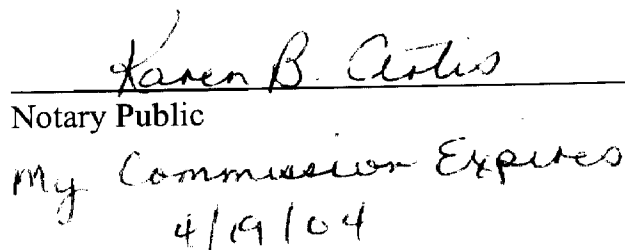 Karen B. Artis
Notary Public
My Commission Expires
4/19/04